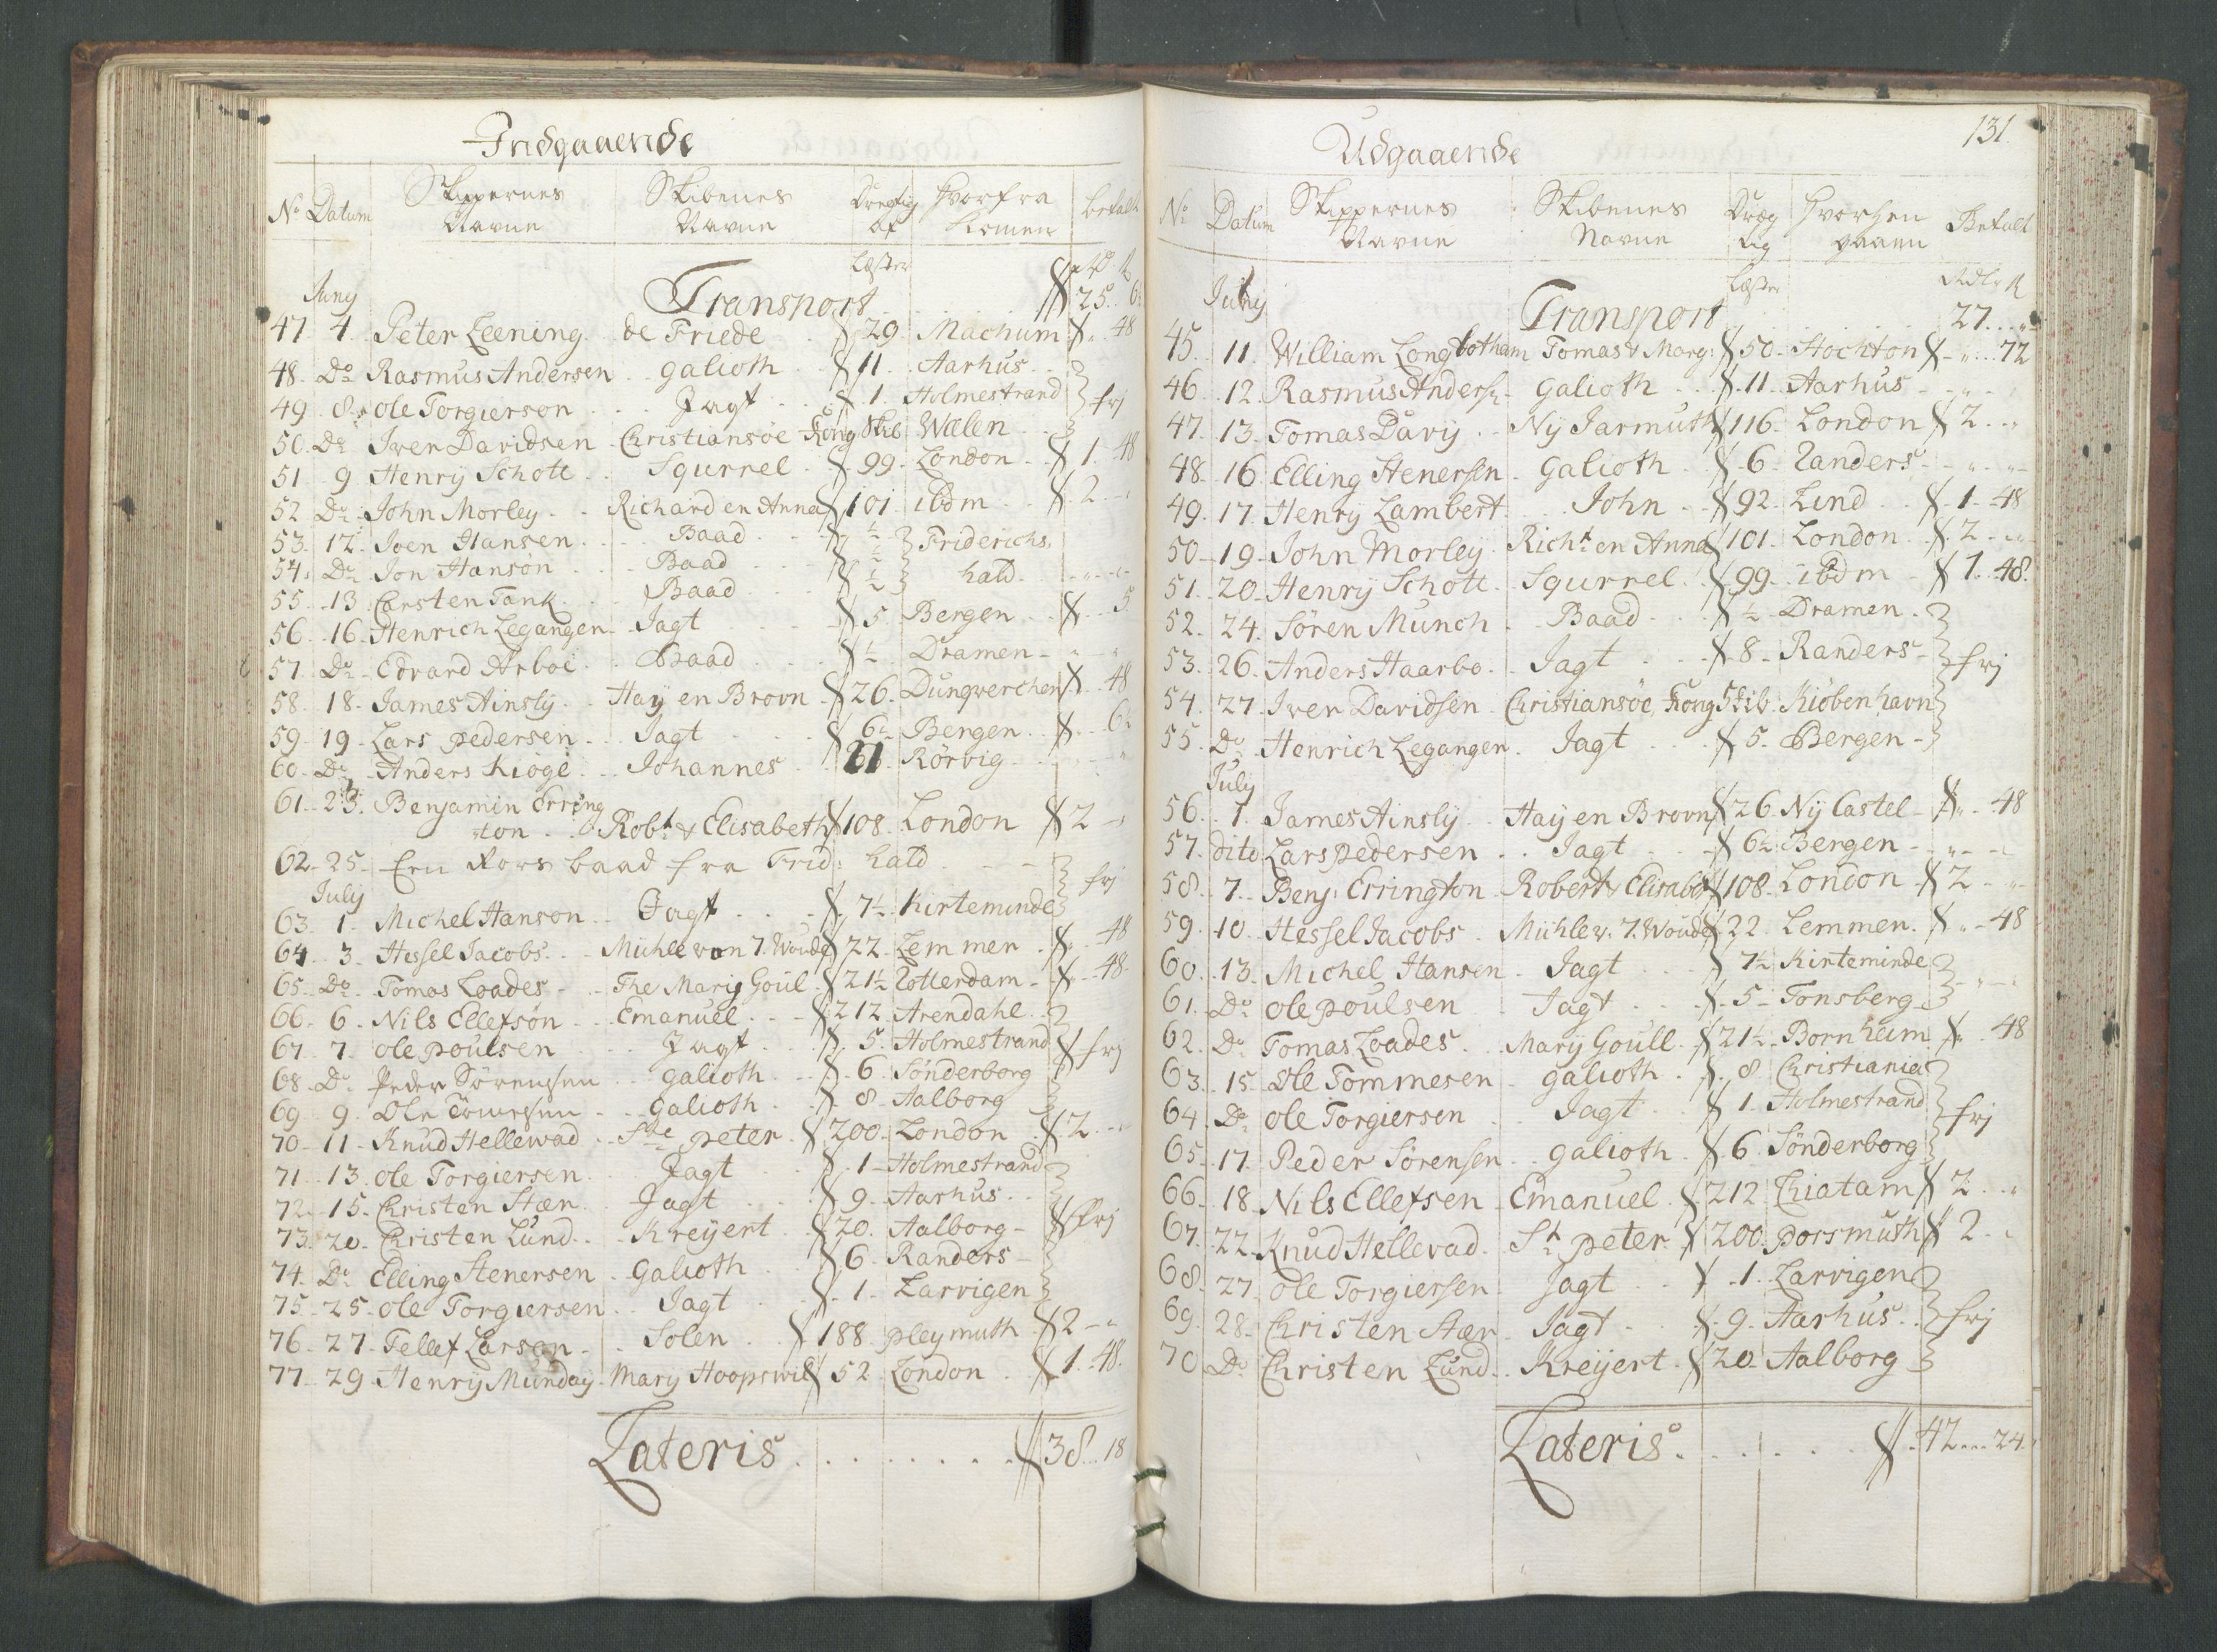 Indgaaende
No Datum Skippernes Navne Skibenes Navne Dregtig af Hvorfra Komen betalt
Læster
Juny Transport 25 6
47 4 Peter Leening de Friede 29 Machum " 48
48 Do Rasmus Andersen galioth 11 Aarhus
49 8 ole Torgierson Jagt 1 Holmestrand frj
50 Do Iver Davidsen Christiansöe Kong Skib Walen
51 9 Henry Schott Squrrel 99 London 1 48
52 Do John Morley Richard en Anna 101 ibdm 2 "
53 12 Joen Hansen Baad ½ Friderichs
54 Do Jon Hanson Baad ½ hald
55 13 Carsten Tank Baad ½
56 16 Henrich Legangen Jagt 5 Bergen 5
57 Do Edvard Arboe Baad ½ Dramen
58 18 James Ainsly Hay en Brovn 26 Dunqverchen 48
59 19 Lars pedersen Jagt 6½ Bergen 6½
60 Do Anders Kioge Johannes 21 Rörvig
61 23 Benjamin Erring
ton Robt & Elisabeth 108 London 2 "
62 25 Een Rors baad fra Frid: hald
July frj
63 1 Michel Hanson Jagt 7½ Kirteminde
64 3 Hessel Jacobs Mühle von 7. Woude 22 Lemmer " 48
65 Do Tomas Loades The Mary Goul 21½ Rotterdam 48
66 6 Nils Ellefsön Emanuel 212 Arendahl
67 7 ole poulsen Jagt 5 Holmestrand frj
68 Do Peder Sörensen galioth 6 Sönderborg
69 9 Ole Tomesen galioth 8 Aalborg
70 11 Knud Hellewad Ste peter 200 London 2 "
71 13 ole Torgiersen Jagt 1 Holmestrand
72 15 Christen Stær Jagt 9 Aarhus
73 20 Christen Lund Kreyert 20 Aalborg frj
74 Do Elling Stenersen Galioth 6 Randers
75 25 ole Torgiersen Jagt 1 Larvigen
76 27 Tellef Larson Solen 188 pleymuth 2 "
77 29 Henry Munday Mary Hoopswil 52 London 1 48
Lateris 38 18
131
Udgaaende
No Datum Skippernes Navne Skibenes Navne Dræg tig Hvorhen gaaen Betalt
Læster Rdlr
July Transport 27 "
45 11 William Longbotham Tomas & Marg: 50 Stochton " 72
46 12 Rasmus Andersen Galioth 11 Aarhus
47 13 Tomas Davy Ny Jarmuth 116 London 2 "
48 16 Elling Stenersen Galioth 6 Randers " "
49 17 Henry Lambert John 92 Lind 1 48
50 19 John Morley Richt en Anna 101 London 2 "
51 20 Henry Schott Squrrel 99 ibdm 1 48
52 24 Sören Munch Baad ½ Dramen
53 26 Anders Haarbo Jagt 8 Randers frj
54 27 Iver Davidsen Christiansöe Kong Skib Kiöbenhavn
55 Do Henrich Legangen Jagt 5 Bergen
July
56 1 James Ainsly Hay en Brovn 26 Ny Castel " 48
57 dito Lars pedersen Jagt 6½ Bergen " "
58 7 Benj: Errington Robert & Elisabt 108 London 2 "
59 10 Hessel Jacobs Mühle v. 7. Woude 22 Lemmen " 48
60 13 Michel Hansen Jagt 7½ Kirteminde
61 Do ole poulsen Jagt 5 Tonsberg
62 Do Tomas Loades Mary Goull 21½ Bornheim " 48
63 15 Ole Tommesen galioth 8 Christiania
64 Do ole Torgiersen Jagt 1 Holmestrand frj
65 17 Peder Sörensen galioth 6 Sönderborg
66 18 Nils Ellefsen Emanuel 212 Chiatam 2 "
67 22 Knud Hellevad St peter 200 porsmuth 2 "
68 27 ole Torgiersen Jagt 1 Larvigen
69 28 Christen Stær Jagt 9 Aarhus frj
70 Do Christen Lund Kreyert 20 Aalborg
Lateris 42 24